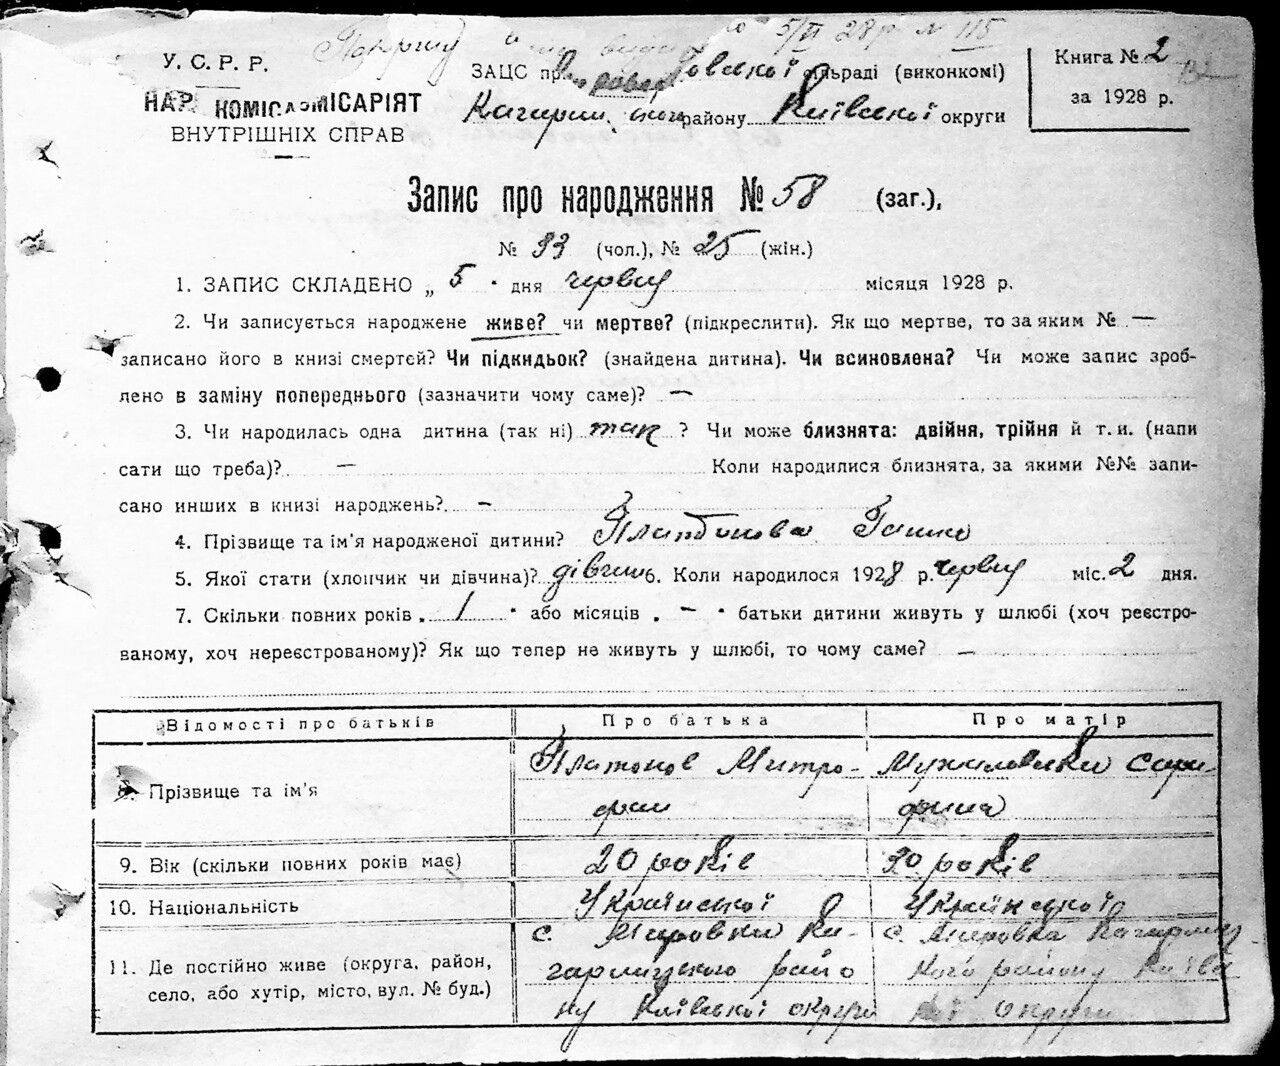 5/VI 28 р № 115
У. С. Р. Р.
ЗАЦС при сільраді (виконкомі)
Книга № 2
НАР. КОМІСАРІЯТ
Кагарлицького району Київської округи
за 1928 р.
ВНУТРІШНІХ СПРАВ
Запис про народження № 58 (заг.),
№ 33 (чол.), № 25 (жін.)
1. ЗАПИС СКЛАДЕНО „ 5 " дня червня місяця 1928 р.
2. Чи записується народжене живе? чи мертве? (підкреслити). Як що мертве, то за яким № —
записано його в книзі смертей? Чи підкидьок? (знайдена дитина). Чи всиновлена? Чи може запис зроб-
лено в заміну попереднього (зазначити чому саме)? —
3. Чи народилась одна дитина (так ні) так ? Чи може близнята: двійня, трійня й т. и. (напи
сати що треба)? — Коли народилися близнята, за якими №№ запи-
сано инших в книзі народжень? —
4. Прізвище та ім'я народженої дитини? Платонова Ганна
5. Якої стати (хлопчик чи дівчина)? дівчина 6. Коли народилося 1928 р. червня міс. 2 дня.
7. Скільки повних років „ 1 " або місяців „ — " батьки дитини живуть у шлюбі (хоч реєстро-
ваному, хоч нереєстрованому)? Як що тепер не живуть у шлюбі, то чому саме? —
Відомості про батьків Про батька Про матір
8. Прізвище та ім'я Платонов Митро-
фан
9. Вік (скільки повних років має) 20 років 30 років
10. Національність Української Української
11. Де постійно живе (округа, район, село, або хутір, місто, вул. № буд.)
с. Мировка Ка-
гарлицького райо
ну Київської округи
с. Мировка Кагарлиц
кого району Київс
кої округи